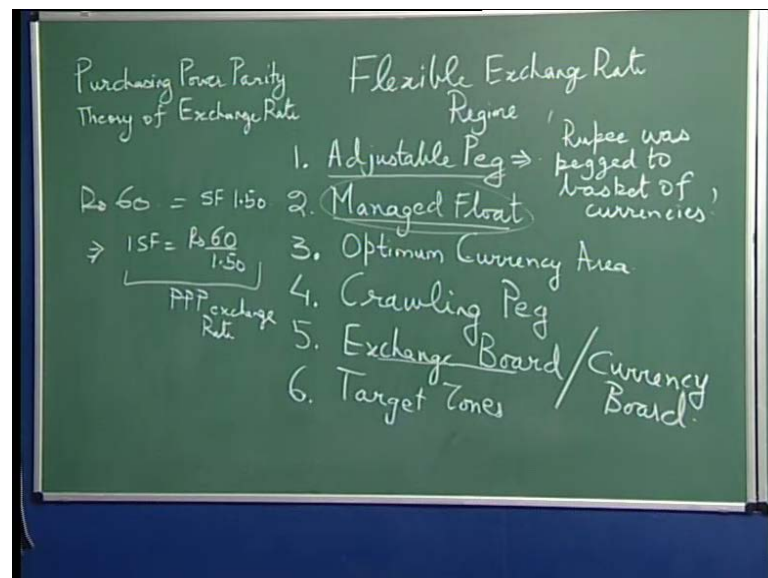 Purchasing Power Parity
Theory of Exchange Rate
Rs 60 = SF 1.50
⇒ 1SF = Rs 60/1.50
PPP exchange
Rate
Flexible Exchange Rate
Regime
1. Adjustable Peg ⇒
'Rupee was
pegged to
basket of
currencies'
2. Managed Float
3. Optimum Currency Area
4. Crawling Peg
5. Exchange Board / Currency
Board.
6. Target Zones